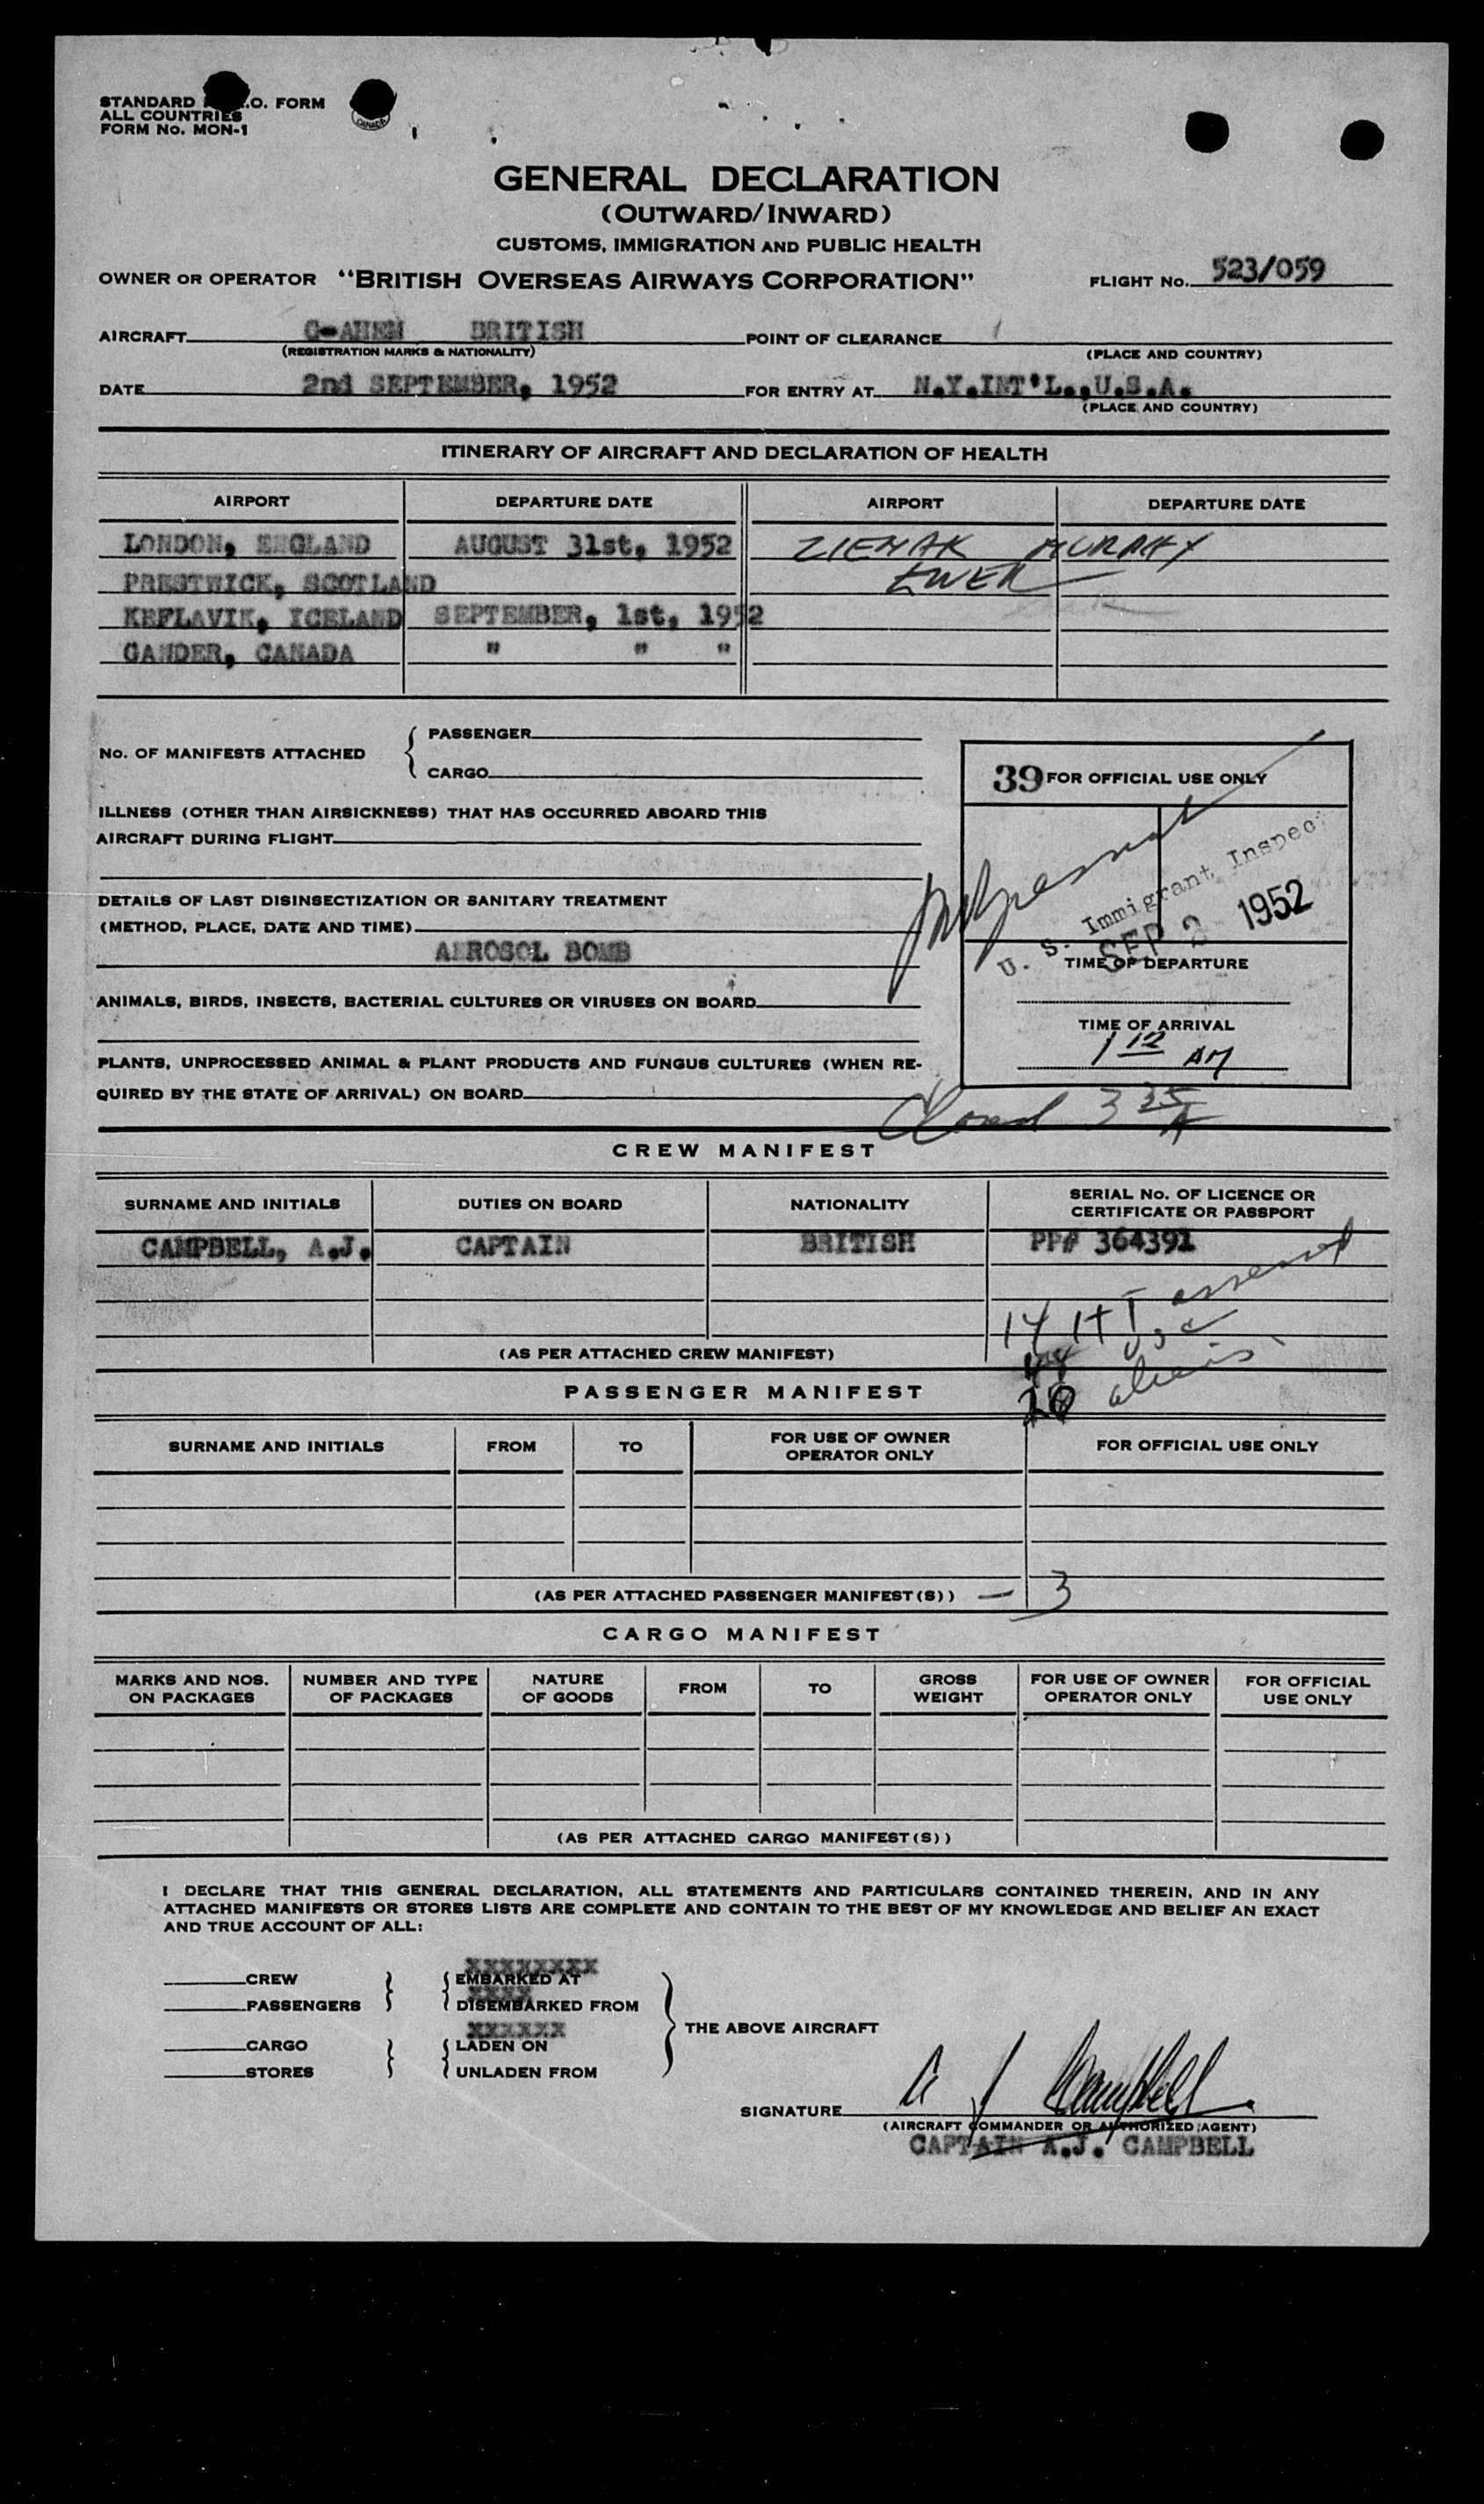 STANDARD .O. FORM
ALL COUNTRIES
FORM No. MON-1
CANADA
GENERAL DECLARATION
(OUTWARD/INWARD)
CUSTOMS, IMMIGRATION AND PUBLIC HEALTH
OWNER OR OPERATOR "BRITISH OVERSEAS AIRWAYS CORPORATION" FLIGHT No. 523/059
AIRCRAFT G-AHEM BRITISH POINT OF CLEARANCE
(REGISTRATION MARKS & NATIONALITY) (PLACE AND COUNTRY)
DATE 2nd SEPTEMBER, 1952 FOR ENTRY AT N.Y.INT'L.,U.S.A.
(PLACE AND COUNTRY)
ITINERARY OF AIRCRAFT AND DECLARATION OF HEALTH
AIRPORT DEPARTURE DATE AIRPORT DEPARTURE DATE
LONDON, ENGLAND AUGUST 31st, 1952 ZIEMAK MURPHY
PRESTWICK, SCOTLAND EWER
KEFLAVIK, ICELAND SEPTEMBER, 1st, 1952
GANDER, CANADA " " "
No. OF MANIFESTS ATTACHED { PASSENGER
CARGO
39 FOR OFFICIAL USE ONLY
ILLNESS (OTHER THAN AIRSICKNESS) THAT HAS OCCURRED ABOARD THIS
AIRCRAFT DURING FLIGHT
U. S. Immigrant Inspec
SEP 2 1952
DETAILS OF LAST DISINSECTIZATION OR SANITARY TREATMENT
(METHOD, PLACE, DATE AND TIME)
AEROSOL BOMB
TIME OF DEPARTURE
ANIMALS, BIRDS, INSECTS, BACTERIAL CULTURES OR VIRUSES ON BOARD
TIME OF ARRIVAL
1 12 AM
PLANTS, UNPROCESSED ANIMAL & PLANT PRODUCTS AND FUNGUS CULTURES (WHEN RE-
QUIRED BY THE STATE OF ARRIVAL) ON BOARD
Closed 3 35 A
CREW MANIFEST
SURNAME AND INITIALS DUTIES ON BOARD NATIONALITY SERIAL No. OF LICENCE OR
CERTIFICATE OR PASSPORT
CAMPBELL, A.J. CAPTAIN BRITISH PP# 364391
14 HT assessed
USC
(AS PER ATTACHED CREW MANIFEST)
20 aliens
PASSENGER MANIFEST
SURNAME AND INITIALS FROM TO FOR USE OF OWNER
OPERATOR ONLY FOR OFFICIAL USE ONLY
(AS PER ATTACHED PASSENGER MANIFEST(S)) — 3
CARGO MANIFEST
MARKS AND NOS.
ON PACKAGES NUMBER AND TYPE
OF PACKAGES NATURE
OF GOODS FROM TO GROSS
WEIGHT FOR USE OF OWNER
OPERATOR ONLY FOR OFFICIAL
USE ONLY
(AS PER ATTACHED CARGO MANIFEST(S))
I DECLARE THAT THIS GENERAL DECLARATION, ALL STATEMENTS AND PARTICULARS CONTAINED THEREIN, AND IN ANY
ATTACHED MANIFESTS OR STORES LISTS ARE COMPLETE AND CONTAIN TO THE BEST OF MY KNOWLEDGE AND BELIEF AN EXACT
AND TRUE ACCOUNT OF ALL:
XXXXXXXX
CREW EMBARKED AT
XXXX
PASSENGERS DISEMBARKED FROM
XXXXXX
THE ABOVE AIRCRAFT
CARGO LADEN ON
STORES UNLADEN FROM
SIGNATURE A J Campbell
(AIRCRAFT COMMANDER OR AUTHORIZED AGENT)
CAPTAIN A.J. CAMPBELL